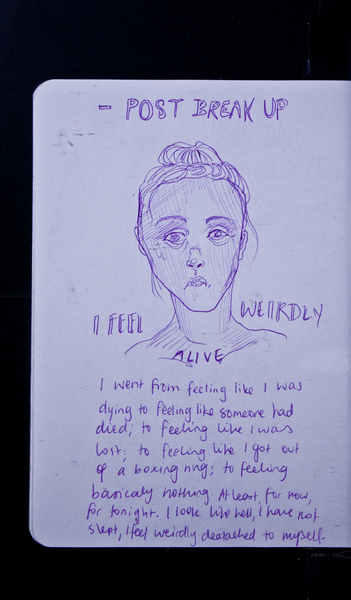 - POST BREAK UP
I FEEL WEIRDLY
ALIVE
I went from feeling like I was
dying to feeling like someone had
died; to feeling like I was
lost; to feeling like I got out
of a boxing ring; to feeling
basically nothing. At least, for now,
for tonight. I look like hell, I have not
slept, I feel weirdly deatached to myself.